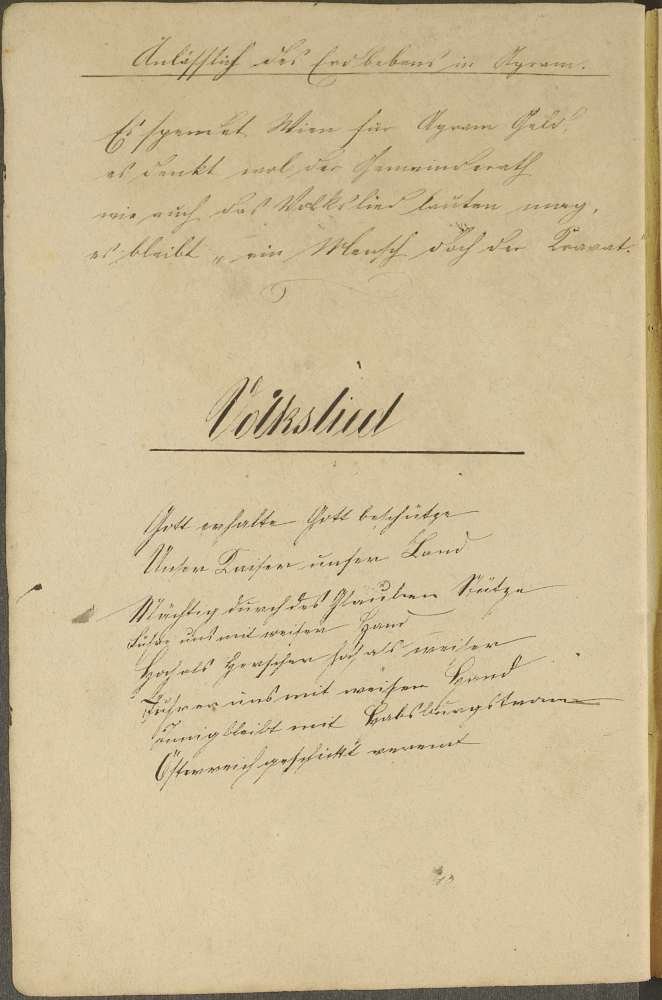 Anlässlich des Erdbebens in Agram.
Es spendet Wien für Agram Geld,
es denkt wol der Gemeinderath
wie auch das Volkslied lauten mag,
es bleibt „ein Mensch doch der Kravat."
Volkslied
Gott erhalte Gott beschütze
Unser Kaiser unser Land
Mächtig durch des Glauben Stütze
Führe uns mit weiser Hand
hoch als weiser
Führer uns mit weisen Hand
Innig bleibt mit Habsburgstrone
Österreich geschickt vereint